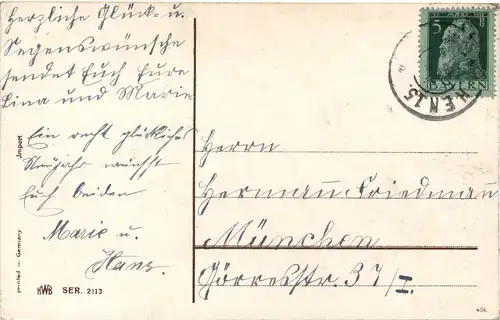 Herzliche Glück- u.
Segenswünsche
sendet Euch Eure
Lina und Marie
Ein recht glückliches
Neujahr wünscht
Euch beiden
Marie u.
Hans.
Import
printed in Germany
HWB SER. 2113
5
BAYERN
HEN. 15
Herrn
Hermann Friedmann
München
Görresstr. 37/I.
426